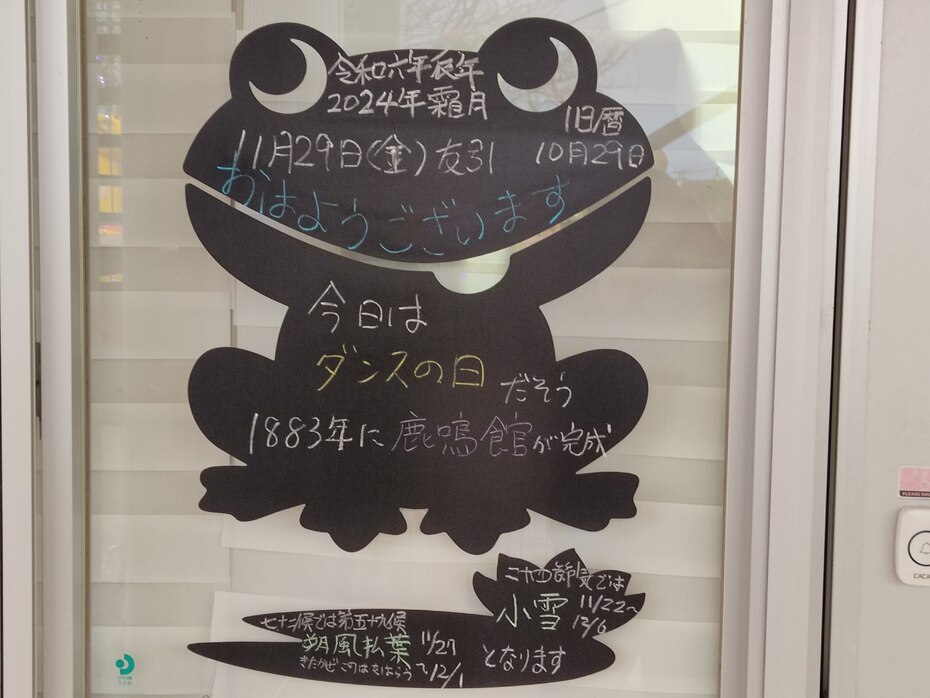 令和六年辰年
2024年霜月
旧暦
11月29日(金)友引 10月29日
おはようございます
今日は
ダンスの日
だそう
1883年に鹿鳴館が完成
二十四節気では
小雪 11/22〜
12/6
七十二候では第五十九候
朔風払葉 11/27
きたかぜこのはをはらう 〜12/1
となります
PLEASE RING